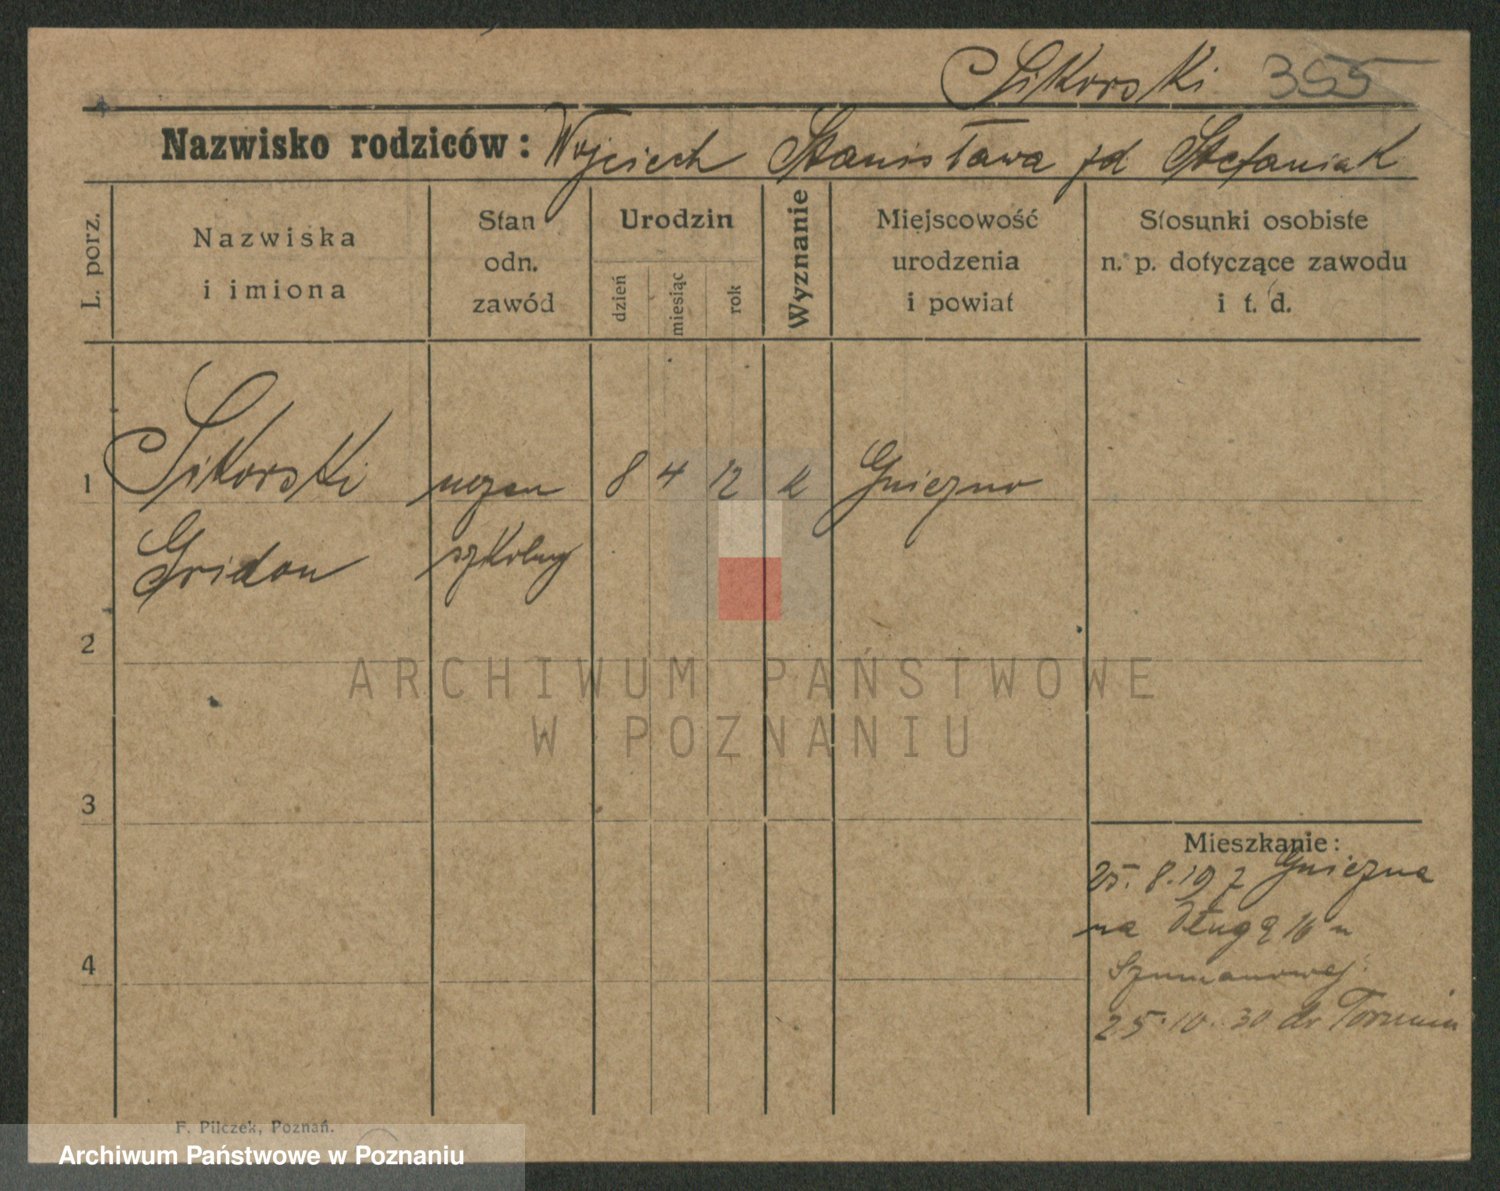 Sikorski 355
Nazwisko rodziców: Wojciech Stanisława zd Stefaniak
L. porz.
Nazwiska
i imiona
Stan
odn.
zawód
Urodzin
dzień
miesiąc
rok
Wyznanie
Miejscowość
urodzenia
i powiat
Stosunki osobiste
n. p. dotyczące zawodu
i t. d.
1 Sikorski uczen 8 4 12 k Gniezno
Gridon szkolny
2
3
4
Mieszkanie:
25.8.19 z Gniezna
na Długą 16 u
Szumanowej
25.10.30 do Torunia
ARCHIWUM PAŃSTWOWE
W POZNANIU
F. Pilczek, Poznań.
Archiwum Państwowe w Poznaniu